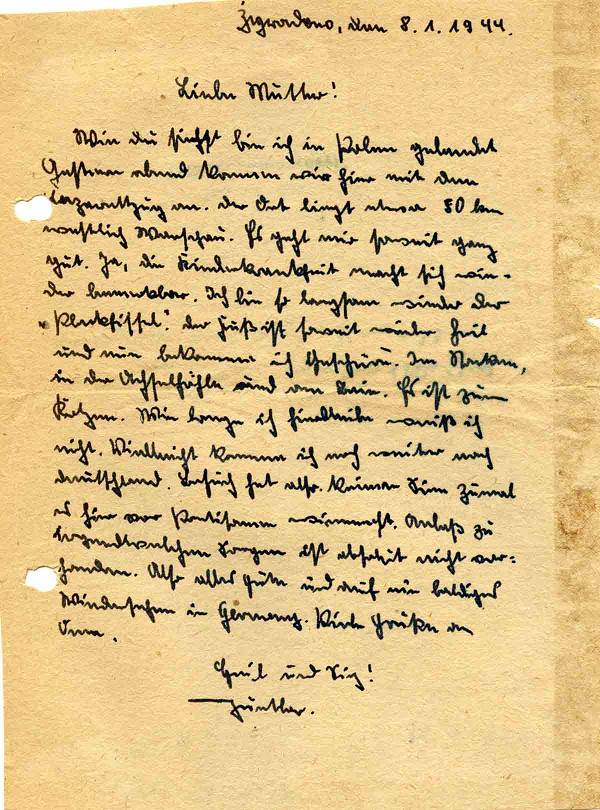 Zigradono, den 8. 1. 1944.
Liebe Mutter!
Wie du siehst bin ich in Polen gelandet
Gestern abend kamen wir hier mit dem
Lazarettzug an. der Ort liegt etwa 50 km
westlich Warschau. Es geht mir soweit ganz
gut. Ja, die Kinderkrankheit macht sich wie-
der bemerkbar. Ich bin so langsam wieder der
der Fuß ist soweit wieder heil
und nun bekomme ich Geschwüre. Im Nacken,
in der Achselhöhle und am Bein. Es ist zum
Kotzen. Wie lange ich hierbleibe weiß ich
nicht. Vielleicht komme ich noch weiter nach
deutschland. Besuch hat also keinen Sinn zumal
es hier vor Partisanen wimmelt. Anlaß zu
irgendwelchen Sorgen ist absolut nicht vor-
handen. Also alles gute und auf ein baldiges
Wiedersehen in Germany. Viele Grüße an
Oma.
Heil und Sieg!
Günther.